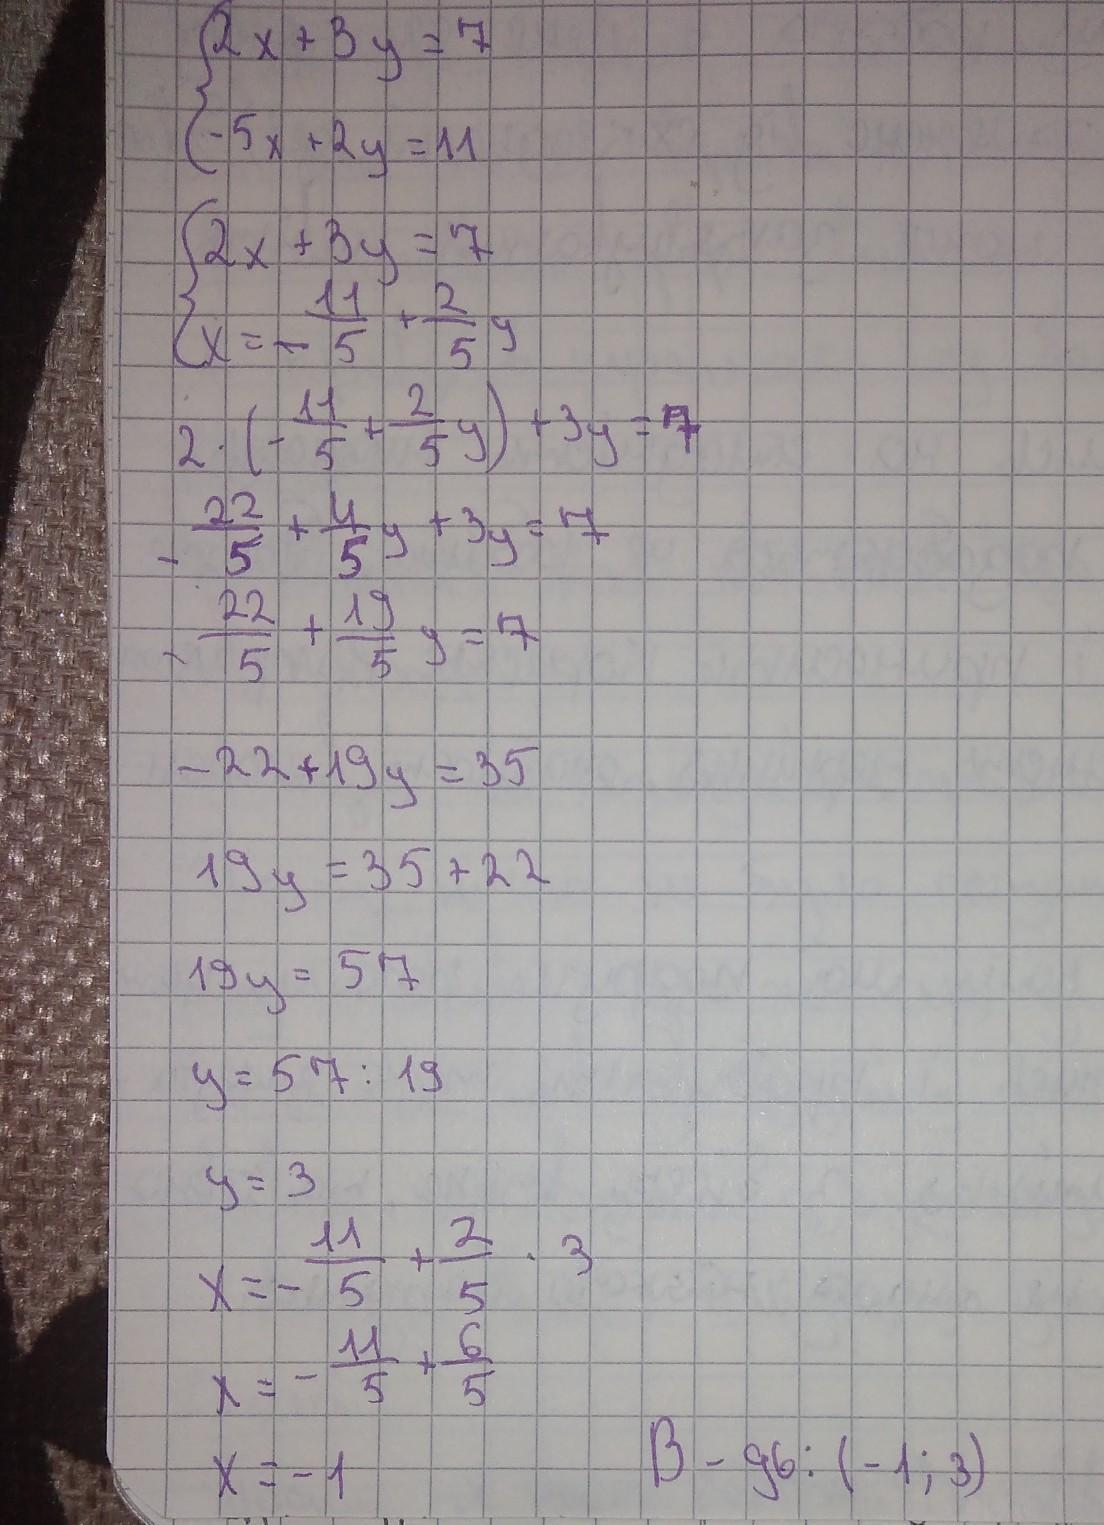 {2x + 3y = 7
{-5x + 2y = 11
{2x + 3y = 7
{x = - 11/5 + 2/5 y
2 · (- 11/5 + 2/5 y) + 3y = 7
- 22/5 + 4/5 y + 3y = 7
- 22/5 + 19/5 y = 7
- 22 + 19y = 35
19y = 35 + 22
19y = 57
y = 57 : 19
y = 3
x = - 11/5 + 2/5 · 3
x = - 11/5 + 6/5
x = - 1
В - дь: (-1; 3)